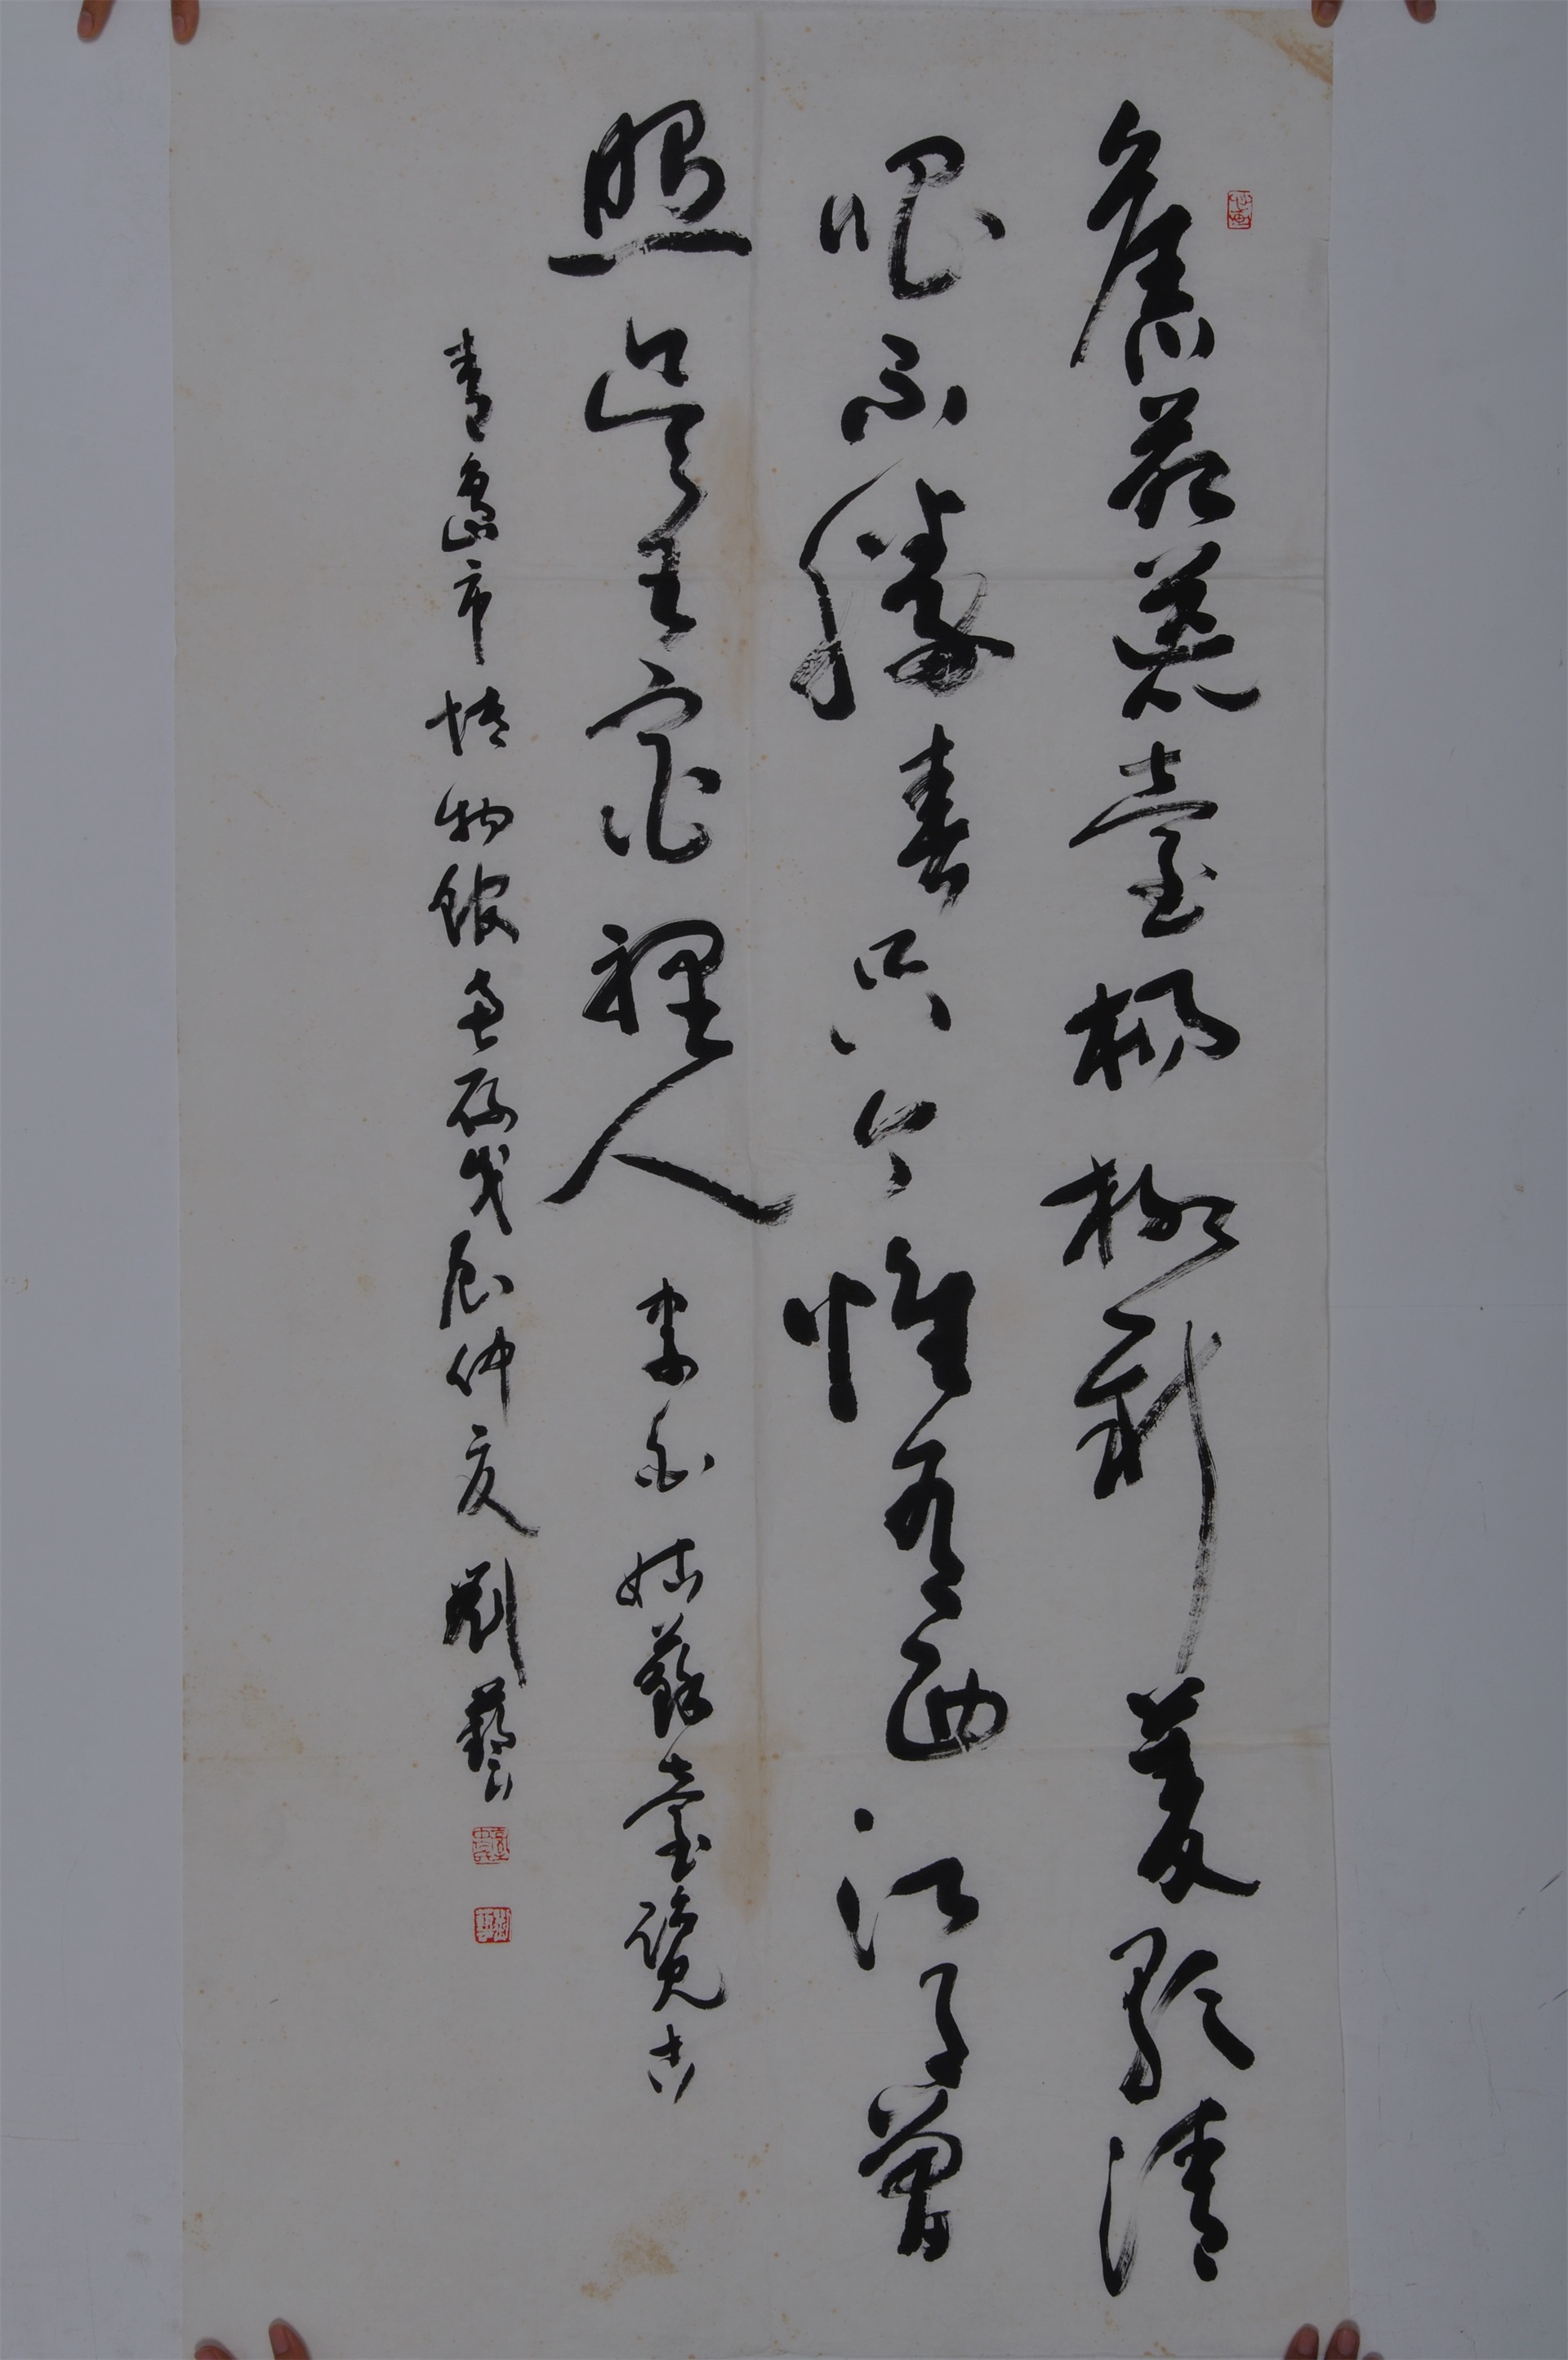 舊苑荒臺楊柳新菱歌清
唱不勝春只今惟有西江月曾
照吳王宮裡人 李白姑蘇臺覽古
青島市博物館惠存戊辰仲夏劉藝